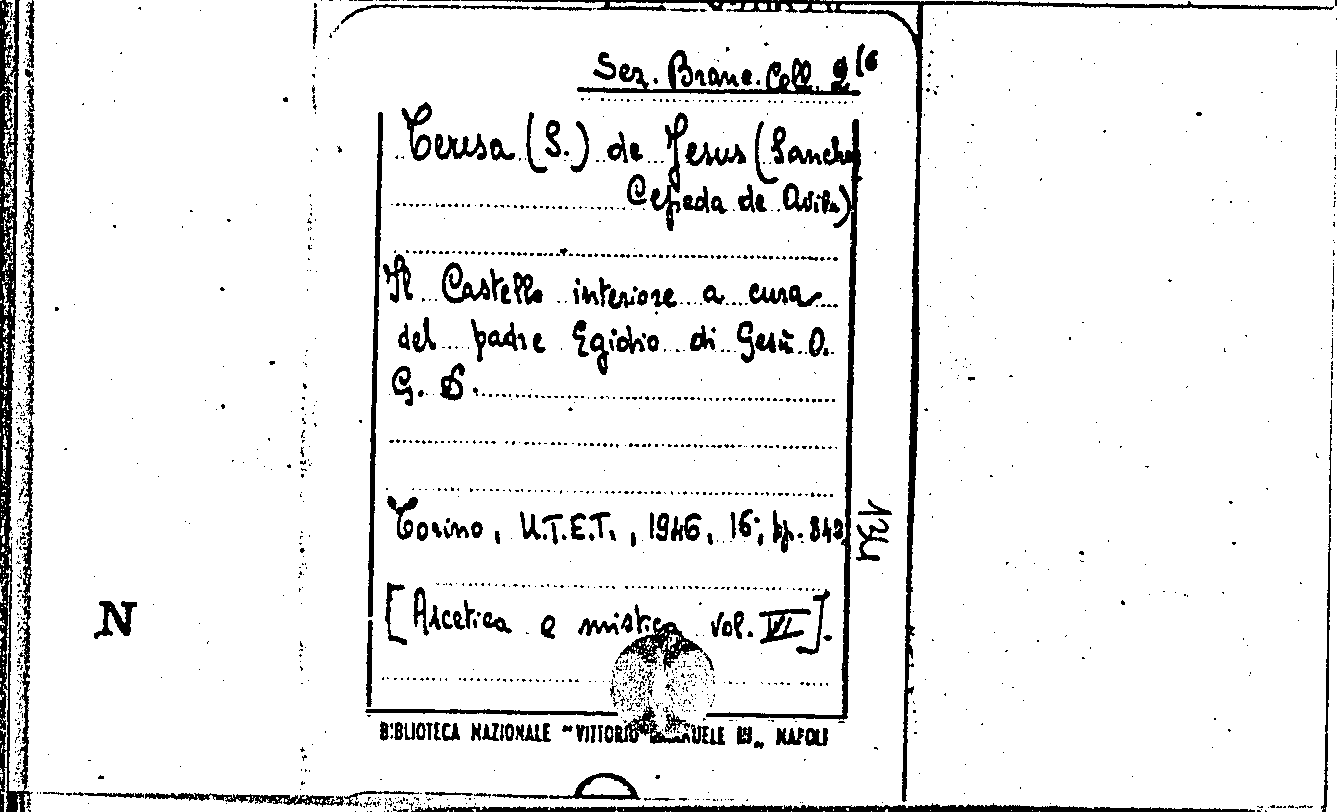 Sez. Branc. Coll. 2/6
Teresa (S.) de Jesus (Sanchez
Cepeda de Avila)
Il Castello interiore a cura
del padre Egidio di Gesù O.
G. D.
Torino, U.T.E.T., 1946, 16°, pp. 343
[Ascetica e mistica vol. VI].
BIBLIOTECA NAZIONALE "VITTORIO EMANUELE III„ NAPOLI
N